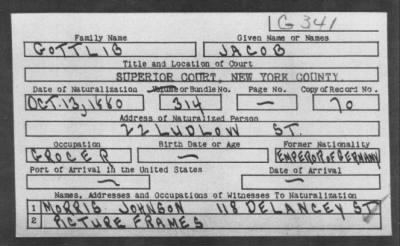 G 341
Family Name Given Name or Names
GOTTLIB JACOB
Title and Location of Court
SUPERIOR COURT, NEW YORK COUNTY.
Date of Naturalization Volume or Bundle No. Page No. Copy of Record No.
OCT. 13, 1880 314 — 70
Address of Naturalized Person
22 LUDLOW ST.
Occupation Birth Date or Age Former Nationality
GROCER — EMPEROR OF GERMANY
Port of Arrival in the United States Date of Arrival
— —
Names, Addresses and Occupations of Witnesses To Naturalization
1 MORRIS JOHNSON 118 DELANCEY ST.
2 PICTURE FRAMES